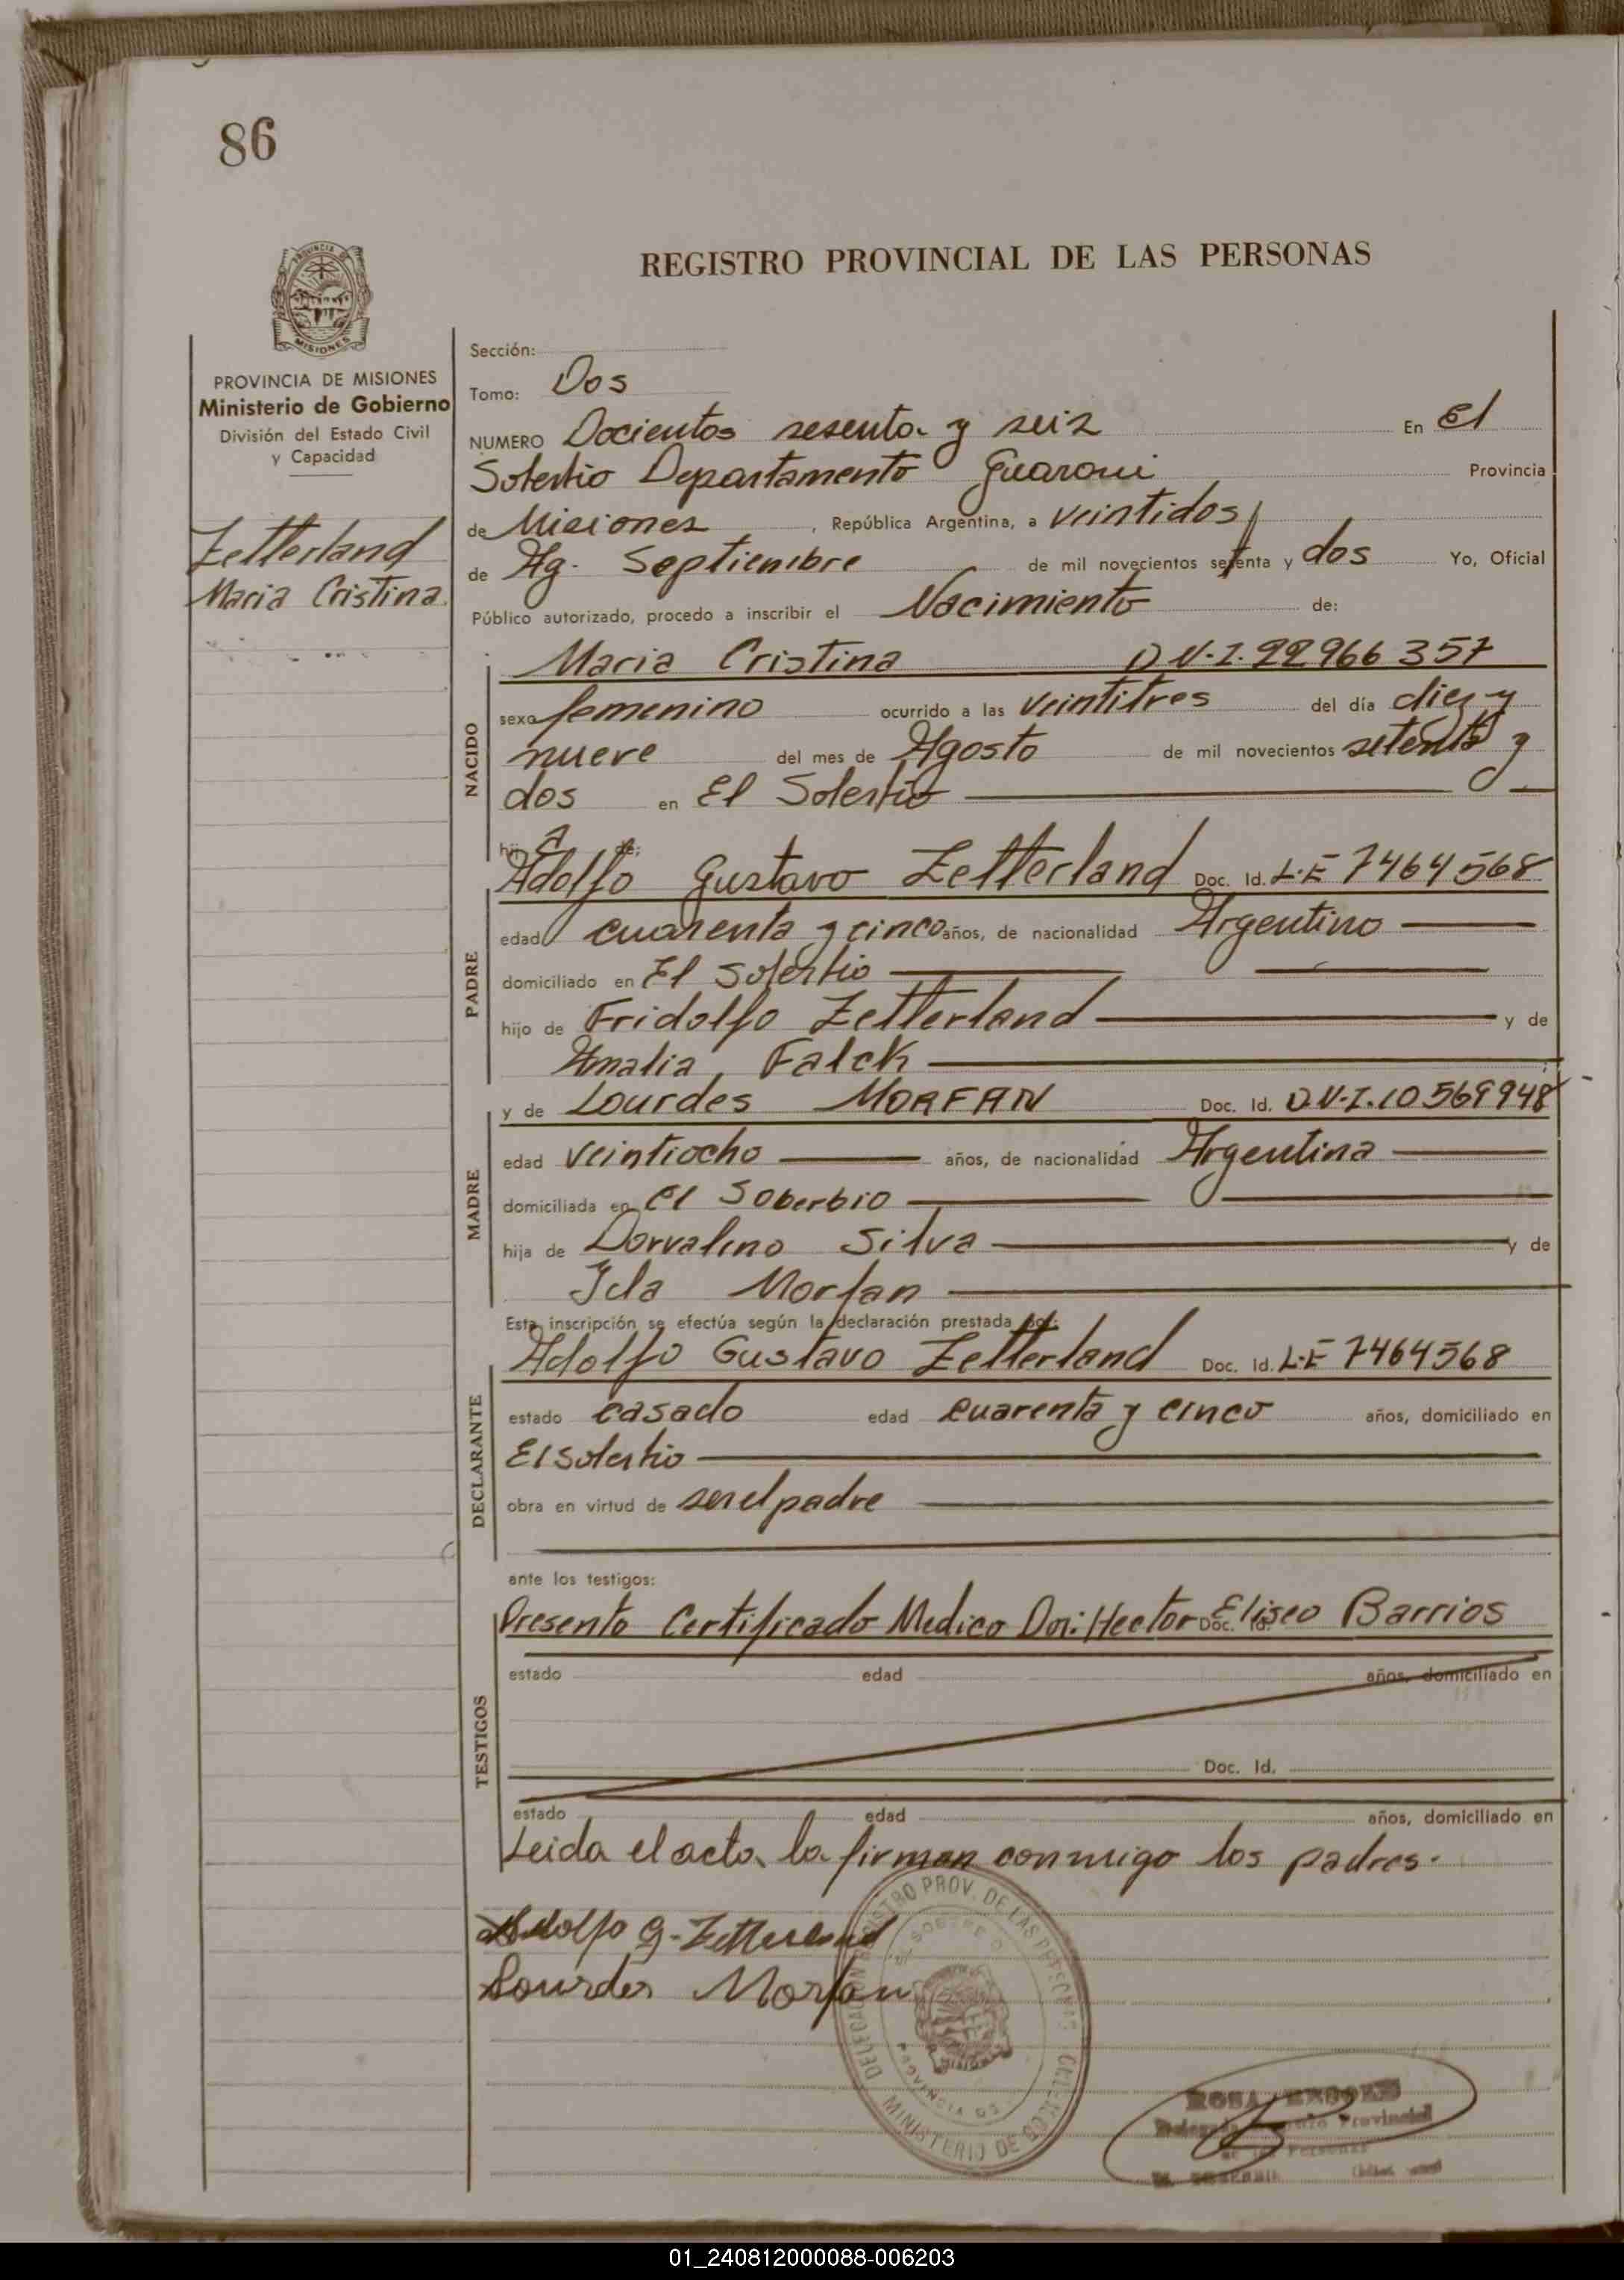 86
PROVINCIA DE
MISIONES
REGISTRO PROVINCIAL DE LAS PERSONAS
PROVINCIA DE MISIONES
Ministerio de Gobierno
División del Estado Civil
y Capacidad
Zetterland
Maria Cristina
Sección:
Tomo: Dos
NUMERO Docientos sesenta y seis En El
Soberbio Departamento Guarani Provincia
de Misiones, República Argentina, a veintidos
de Ag. Septiembre de mil novecientos setenta y dos Yo, Oficial
Público autorizado, procedo a inscribir el Nacimiento de:
NACIDO
Maria Cristina D.N.I. 22966357
sexo femenino ocurrido a las veintitres del día diez y
nueve del mes de Agosto de mil novecientos setenta y
dos en El Soberbio
hij a de:
PADRE
Adolfo Gustavo Zetterland Doc. Id. L.E 7464568
edad cuarenta y cinco años, de nacionalidad Argentino
domiciliado en El Soberbio
hijo de Fridolfo Zetterland y de
Amalia Falck
MADRE
y de Lourdes MORFAN Doc. Id. D.N.I. 10569948
edad veintiocho años, de nacionalidad Argentina
domiciliada en El Soberbio
hija de Dorvalino Silva y de
Ida Morfan
Esta inscripción se efectúa según la declaración prestada por:
DECLARANTE
Adolfo Gustavo Zetterland Doc. Id. L.E 7464568
estado casado edad cuarenta y cinco años, domiciliado en
El Soberbio
obra en virtud de ser el padre
ante los testigos:
TESTIGOS
Presento Certificado Medico Dr: Hector Eliseo Barrios Doc. Id.
estado edad años, domiciliado en
Doc. Id.
estado edad años, domiciliado en
Leida el acta la firman conmigo los padres.
Adolfo G. Zetterland
Lourdes Morfan
DELEGACION REGISTRO PROV. DE LAS PERSONAS
EL SOBERBIO
PROVINCIA DE
MISIONES
MINISTERIO DE GOBIERNO
ROSA
Provincial
de las Personas
EL SOBERBIO
01_240812000088-006203